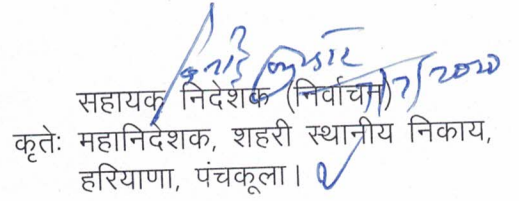 सहायक निदेशक (निर्वाचन)
कृतेः महानिदेशक, शहरी स्थानीय निकाय,
हरियाणा, पंचकूला।